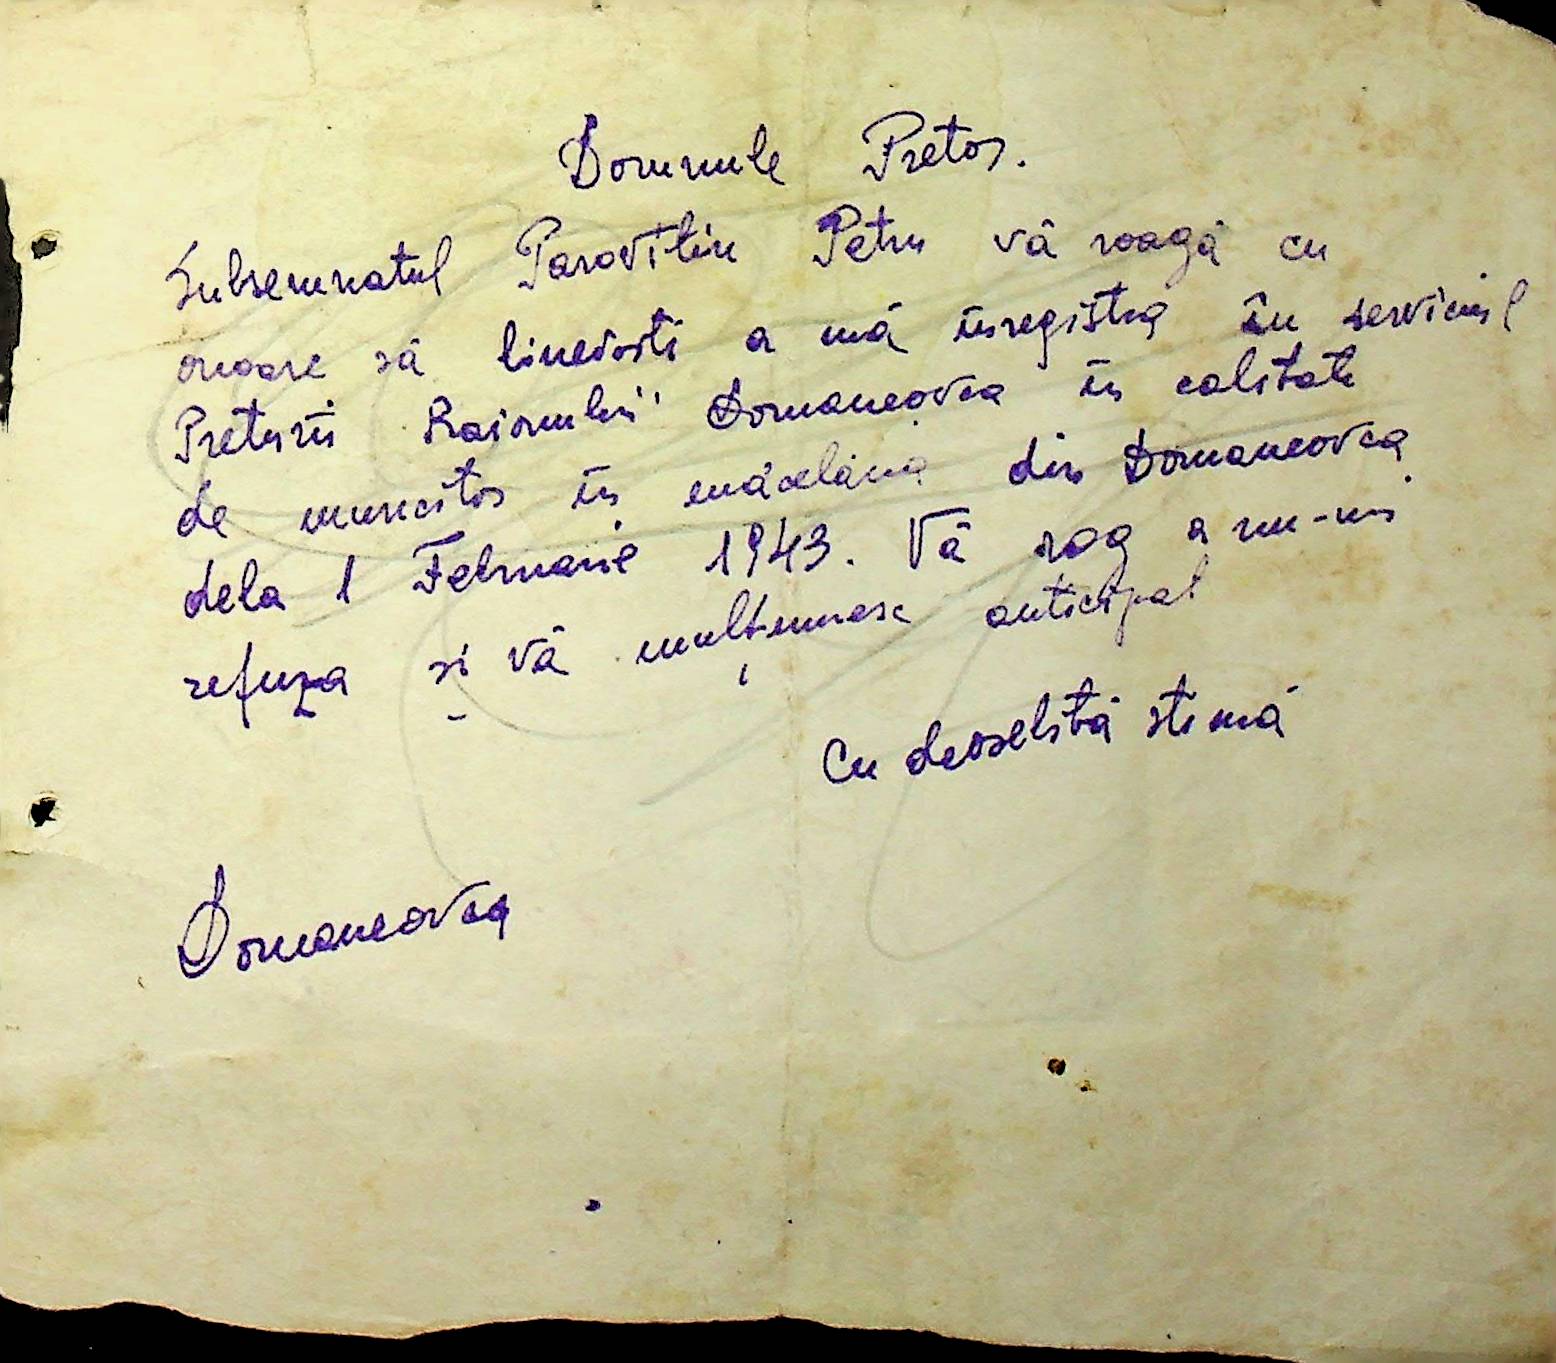 Domnule Pretor.
Subsemnatul Parovitin Petru vă roagă cu
onoare să binevoiti a mă înregistra în serviciul
Preturii Raionului Domaneovca în calitate
de muncitor în măcelăria din Domaneovca
dela 1 Februarie 1943. Vă rog a nu-mi
refuza și vă mulțumesc anticipat
Cu deoselită stimă
Domaneovca